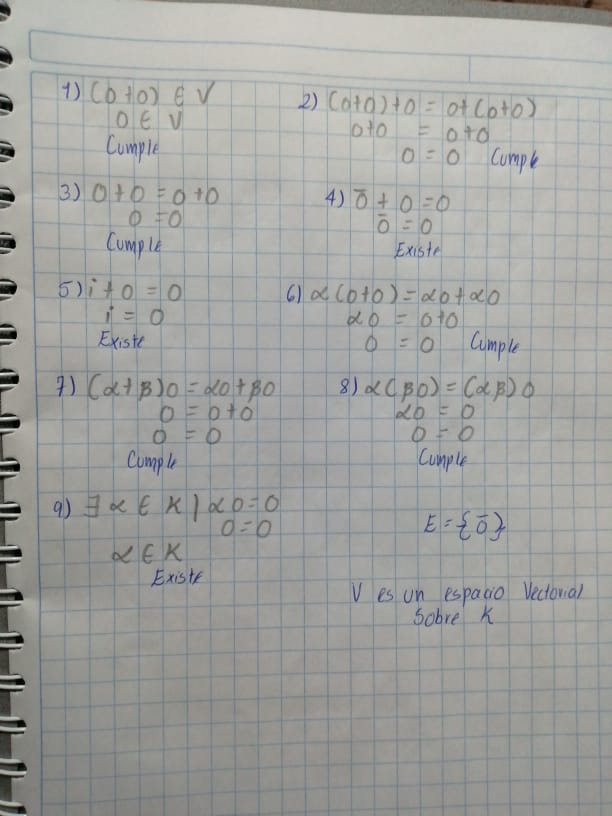 1) (0+0) ∈ V
0 ∈ V
Cumple
2) (0+0)+0 = 0+(0+0)
0+0 = 0+0
0 = 0 Cumple
3) 0+0 = 0+0
0 = 0
Cumple
4) 0̄ + 0 = 0
0̄ = 0
Existe
5) i + 0 = 0
i = 0
Existe
6) α(0+0) = α0+α0
α0 = 0+0
0 = 0 Cumple
7) (α+β)0 = α0+β0
0 = 0+0
0 = 0
Cumple
8) α(β0) = (αβ)0
α0 = 0
0 = 0
Cumple
9) ∃ α ∈ K | α0 = 0
0 = 0
α ∈ K
Existe
E = {0̄}
V es un espacio Vectorial
Sobre K